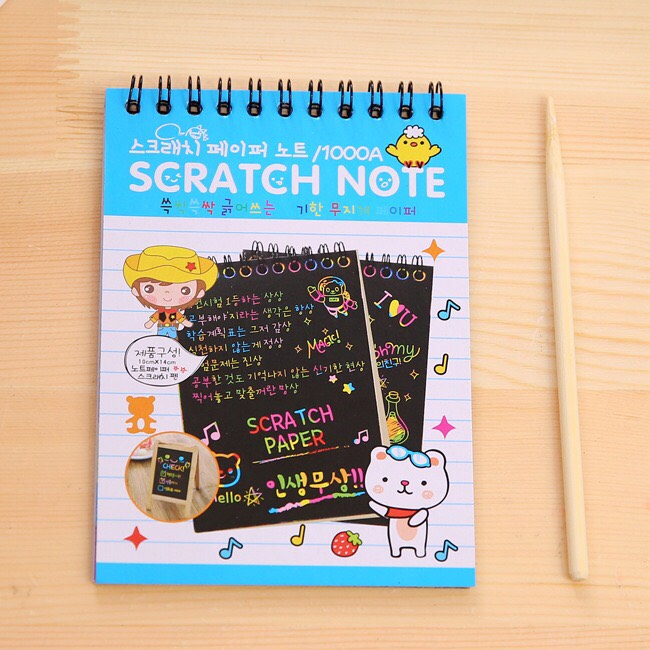 스크래치 페이퍼 노트/1000A
SCRATCH NOTE
쓱싹쓱싹 긁어쓰는
기한 무지개 이퍼
시험 1등하는 상상
부해야지라는 생각은 항상
학습계획표는 그저 감상
실천하지 않는게 정상
험문제는 진상
공부한 것도 기억나지 않는 신기한 현상
찍어놓고 맞출꺼란 망상
Magic!
SCRATCH
PAPER
Hello
인생무상!!
I U
Oh my
제품구성!
10cmX14cm
노트페이퍼
스크래치 펜
CHECK!